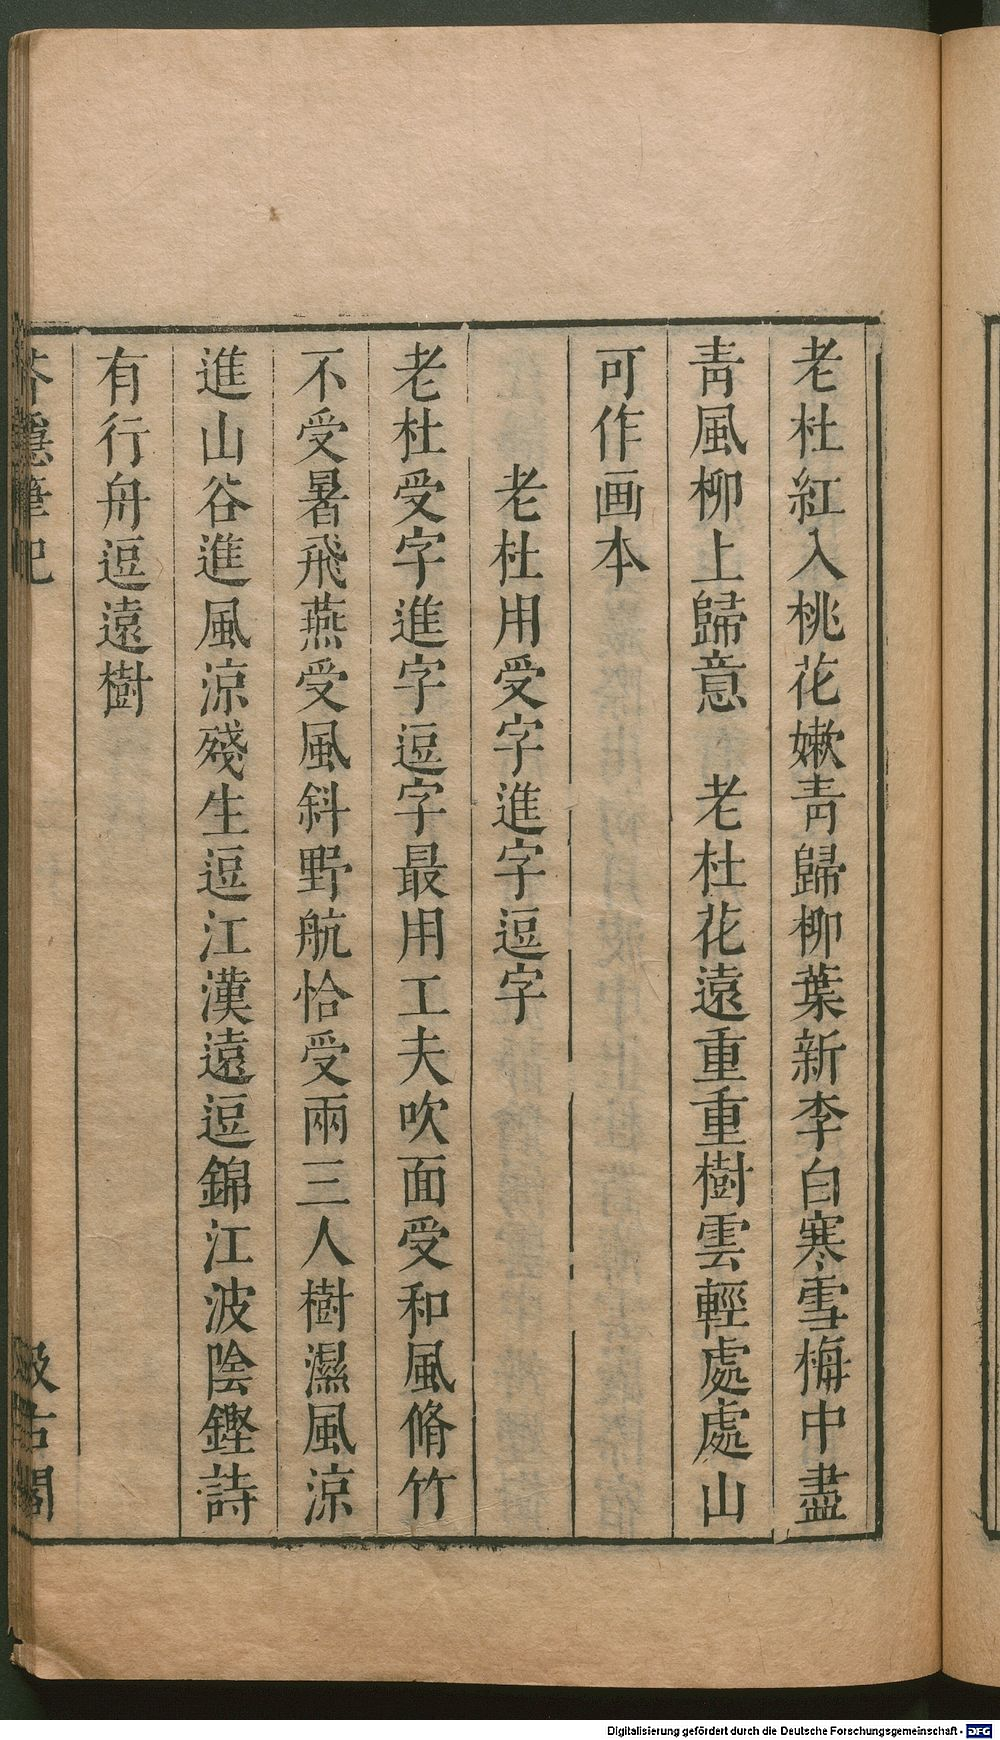 老杜紅入桃花嫰青歸柳葉新李白寒雪梅中盡
青風柳上歸意　老杜花遠重重樹雲輕處處山
可作画本
老杜用受字進字逗字
老杜受字進字逗字最用工夫吹面受和風脩竹
不受暑飛燕受風斜野航恰受兩三人樹濕風涼
進山谷進風涼殘生逗江漢遠逗錦江波陰鏗詩
有行舟逗遠樹
芥隱筆記
汲古閣
Digitalisierung gefördert durch die Deutsche Forschungsgemeinschaft - DFG